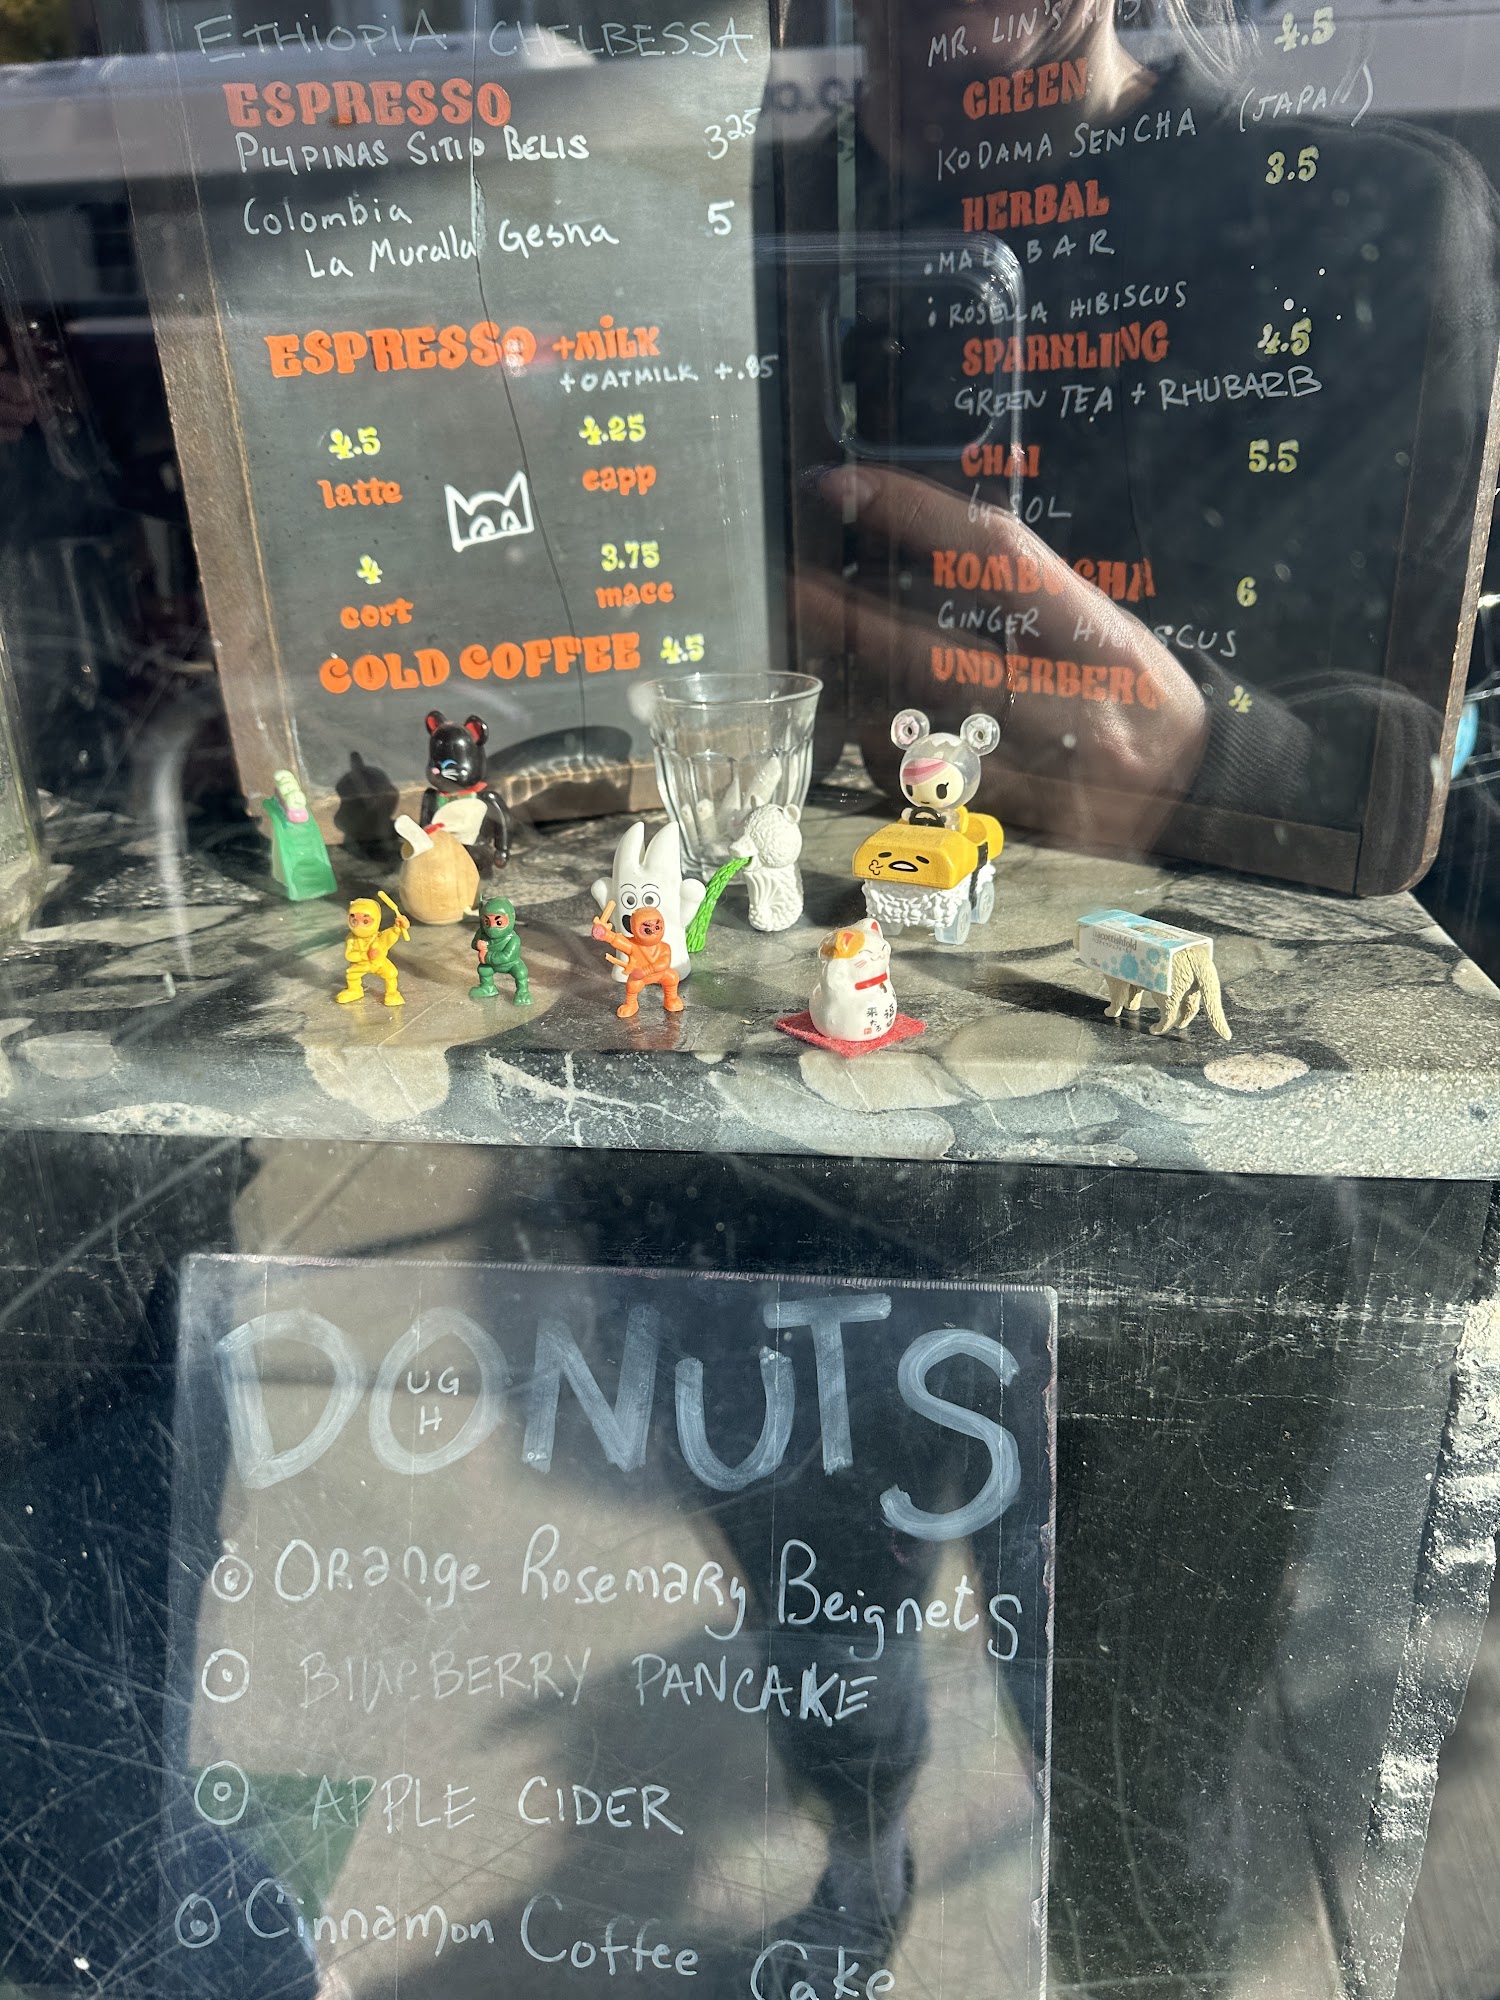 ETHIOPIA CHELBESSA
ESPRESSO
PILIPINAS SITIO BELIS 325
Colombia
La Muralla Gesha 5
ESPRESSO +MILK
+ OATMILK +.85
4.5 4.25
latte capp
4 3.75
cort macc
COLD COFFEE 4.5
MR. LIN'S
4.5
GREEN
KODAMA SENCHA (JAPAN)
3.5
HERBAL
MALABAR
ROSELLA HIBISCUS
SPARKLING 4.5
GREEN TEA + RHUBARB
CHAI 5.5
by SOL
KOMBUCHA 6
GINGER HIBISCUS
UNDERBERG 4
DONUTS
UG
H
Orange Rosemary Beignets
BlueBERRY PANCAKE
APPLE CIDER
Cinnamon Coffee Cake